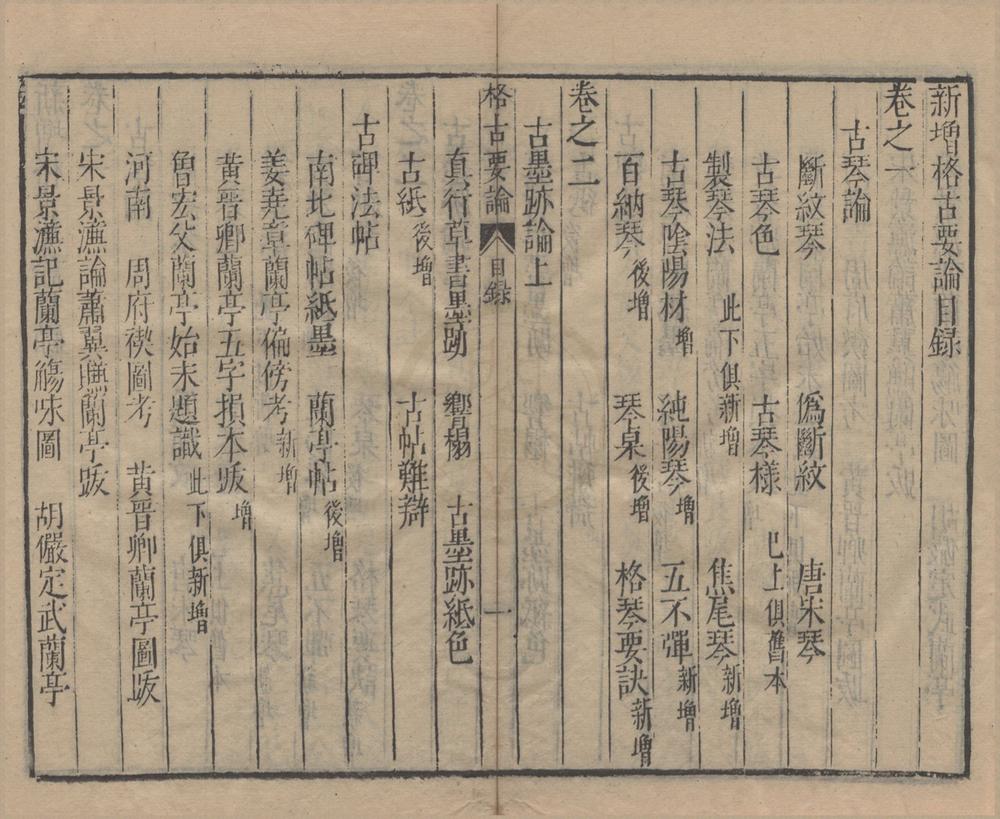 新增格古要論目録
卷之一
古琴論
斷紋琴 僞斷紋 唐宋琴
古琴色 古琴樣 巳上俱舊本
製琴法 此下俱新增 焦尾琴新增
古琴陰陽材增 純陽琴增 五不彈新增
百納琴後增 琴桌後增 格琴要訣新增
卷之二
古墨跡論上
格古要論 目録 一
真行草書墨跡 響榻 古墨跡紙色
古紙後增 古帖難辯
古碑法帖
南北碑帖紙墨 蘭亭帖後增
姜堯章蘭亭偏傍考新增
黃晉卿蘭亭五字損本跋增
魯宏父蘭亭始末題識此下俱新增
河南 周府禊圖考 黃晉卿蘭亭圖跋
宋景濂論蕭翼賺蘭亭跋
宋景濂記蘭亭觴咏圖 胡儼定武蘭亭